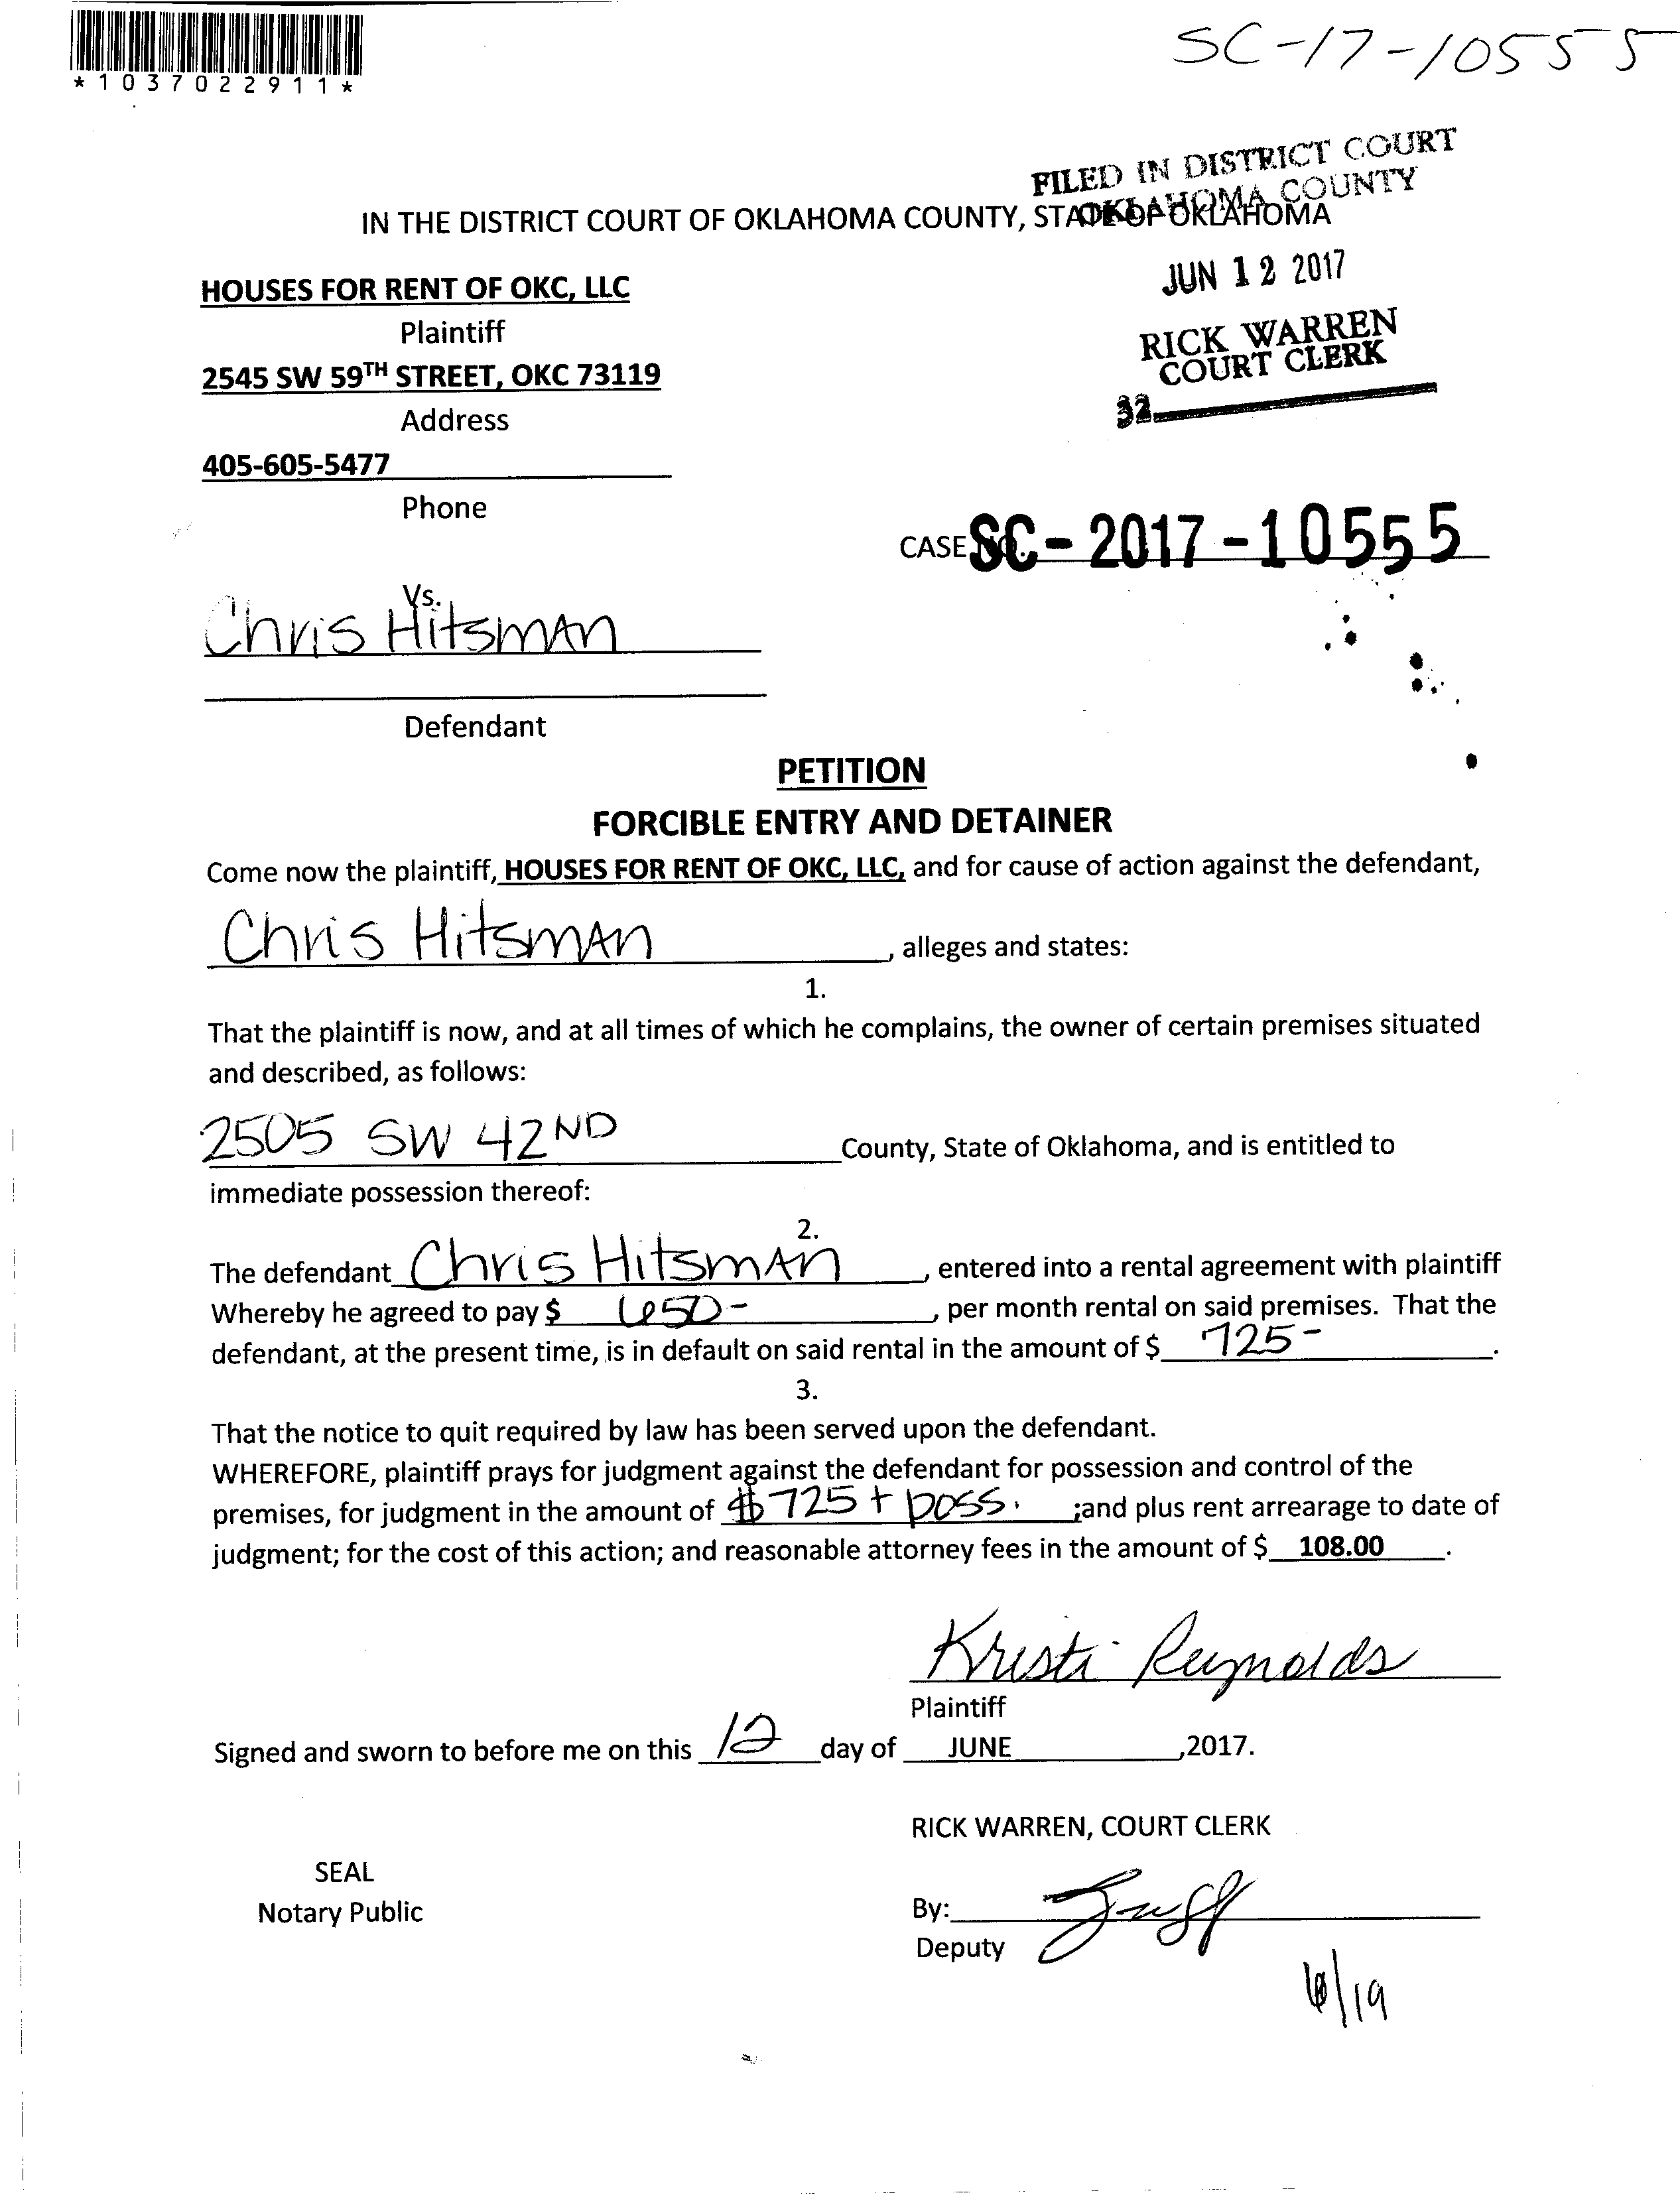 *1037022911*
SC-17-10555
FILED IN DISTRICT COURT
OKLAHOMA COUNTY
IN THE DISTRICT COURT OF OKLAHOMA COUNTY, STATE OF OKLAHOMA
JUN 12 2017
RICK WARREN
COURT CLERK
32
HOUSES FOR RENT OF OKC, LLC
Plaintiff
2545 SW 59TH STREET, OKC 73119
Address
405-605-5477
Phone
CASE NO. SC-2017-10555
Vs.
Chris Hitsman
Defendant
PETITION
FORCIBLE ENTRY AND DETAINER
Come now the plaintiff, HOUSES FOR RENT OF OKC, LLC, and for cause of action against the defendant,
Chris Hitsman, alleges and states:
1.
That the plaintiff is now, and at all times of which he complains, the owner of certain premises situated
and described, as follows:
2505 SW 42ND County, State of Oklahoma, and is entitled to
immediate possession thereof:
2.
The defendant Chris Hitsman, entered into a rental agreement with plaintiff
Whereby he agreed to pay $ 650-, per month rental on said premises. That the
defendant, at the present time, is in default on said rental in the amount of $ 725-.
3.
That the notice to quit required by law has been served upon the defendant.
WHEREFORE, plaintiff prays for judgment against the defendant for possession and control of the
premises, for judgment in the amount of $725 + poss. ;and plus rent arrearage to date of
judgment; for the cost of this action; and reasonable attorney fees in the amount of $ 108.00.
Kristi Reynolds
Plaintiff
Signed and sworn to before me on this 12 day of JUNE ,2017.
RICK WARREN, COURT CLERK
SEAL
Notary Public
By:
Deputy
6/19